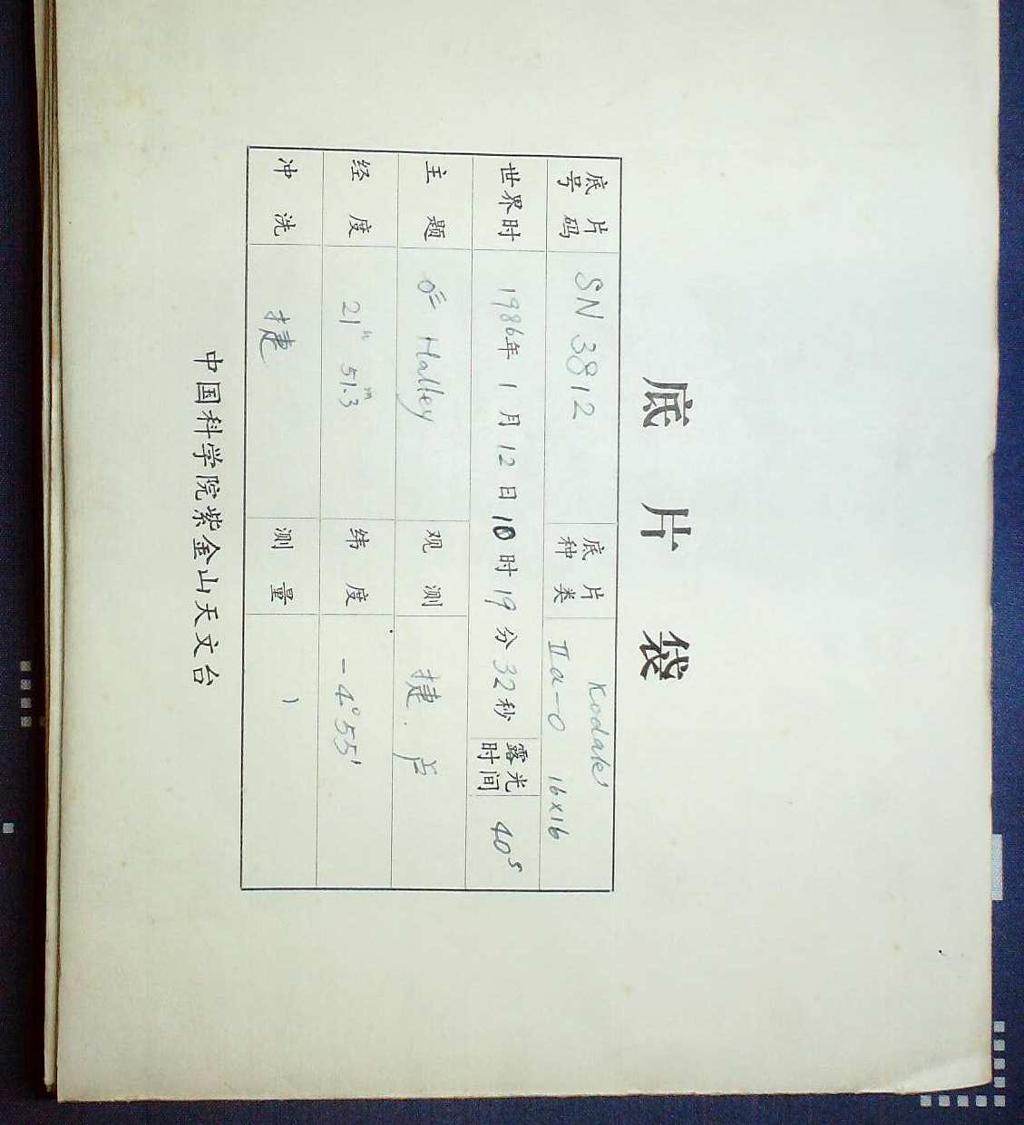 底片袋
底片号码 SN 3812 底片种类 Kodak IIa-O 16×16
世界时 1986年1月12日10时19分32秒 露光时间 40s
主题 Halley 观测 捷.卢
经度 21h 51.3m 纬度 -4°55'
冲洗 捷 测量
中国科学院紫金山天文台